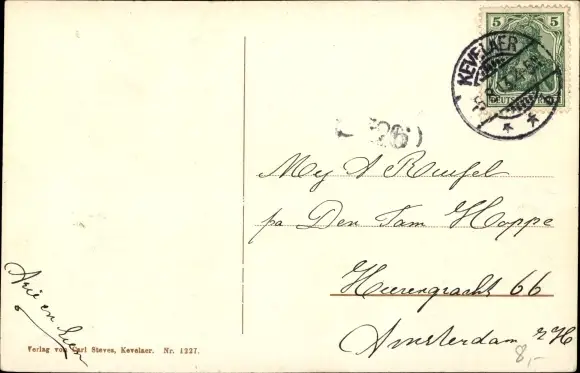 5 5
DEUTSCHES REICH
KEVELAER
(26)
Mej A Ruifel
pa Den Tam Hoppe
Heerengracht 66
Amsterdam
Arie en
Verlag von Carl Steves, Kevelaer. Nr. 1227.
8,-